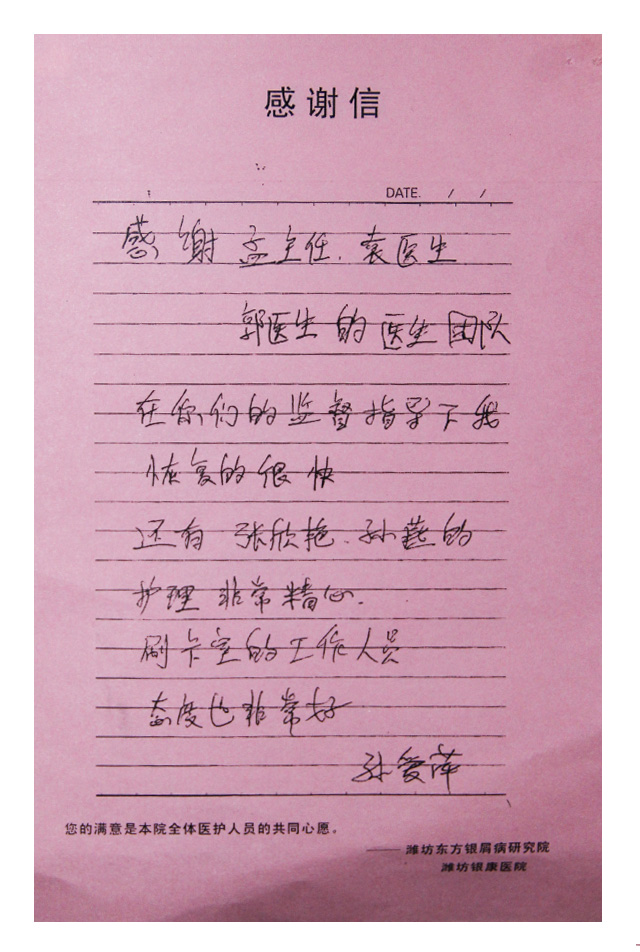 感谢信
DATE. / /
感谢孟主任、袁医生
郭医生的医生团队
在你们的监督指导下我
恢复的很快
还有张欣艳、孙燕的
护理非常精心.
刷卡室的工作人员
态度也非常好
孙爱萍
您的满意是本院全体医护人员的共同心愿。
——潍坊东方银屑病研究院
潍坊银康医院